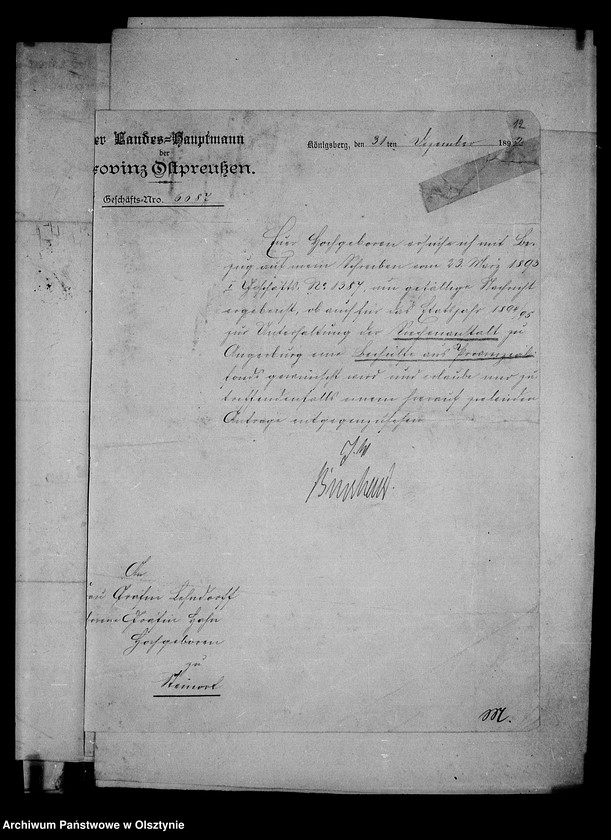 12
er Landes-Hauptmann
der
rovinz Ostpreußen.
Geschäfts-Nro. 6687
Königsberg, den 31ten Dezember 189
Euer Hochgeboren ersuche ich mit Be-
zug auf mein Schreiben vom 23. März 1893
I Geschäfts. No 1387, um gefällige Nachricht
ergebenst, ob auch für das Etatsjahr 1894/95
zur Unterhaltung der Siechenanstalt zu
Angerburg eine Beihülfe aus Provinzial-
fonds gewünscht wird und erlaube mir zu
treffendenfalls einem hierauf zielenden
Antrage entgegenzusehen
J. V.
An
au Gräfin Lehndorff
borene Gräfin Hahn
Hochgeboren
zu
Steinort
M.
Archiwum Państwowe w Olsztynie